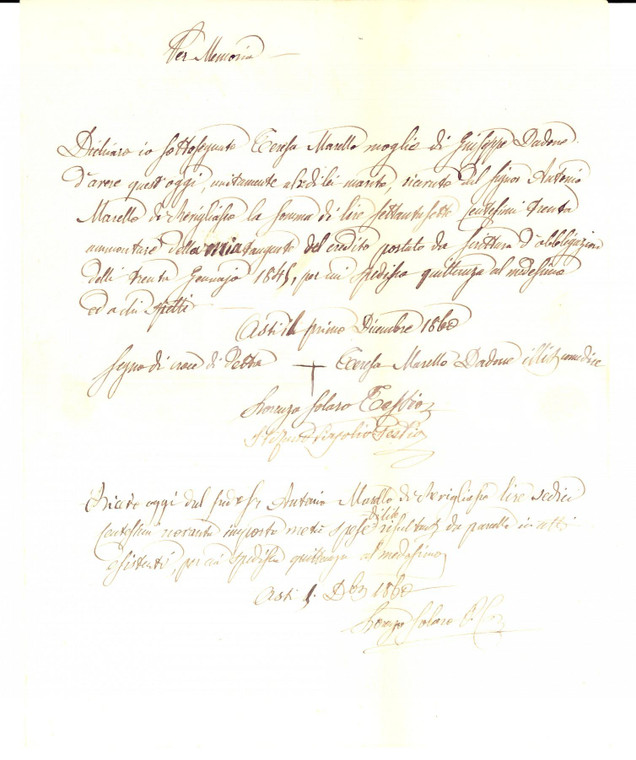 Per Memoria
Dichiaro io sottosegnata Teresa Marello moglie di Giuseppe Dadone
d'avere quest'oggi, unitamente al di lei marito, ricevuto dal signor Antonio
Marello di Revigliasco la somma di lire settantasette centesimi trenta
ammontare della mia tangente del credito portato da scrittura d'obbligazione
delli trenta Gennajo 1845, per cui spedisco quittanza al medesimo
ed a chi spetti
Asti il primo Dicembre 1860
Segno di croce di detta + Teresa Marello Dadone come dice
Lorenzo Solaro Testio
Testio
oggi dal Antonio Marello di Revigliasco lire sedici
centesimi novanta importo metà spese risultanti da parcella in atti
esistenti, per cui spedisco quittanza al medesimo
Asti 1. Dbre 1860
Lorenzo Solaro